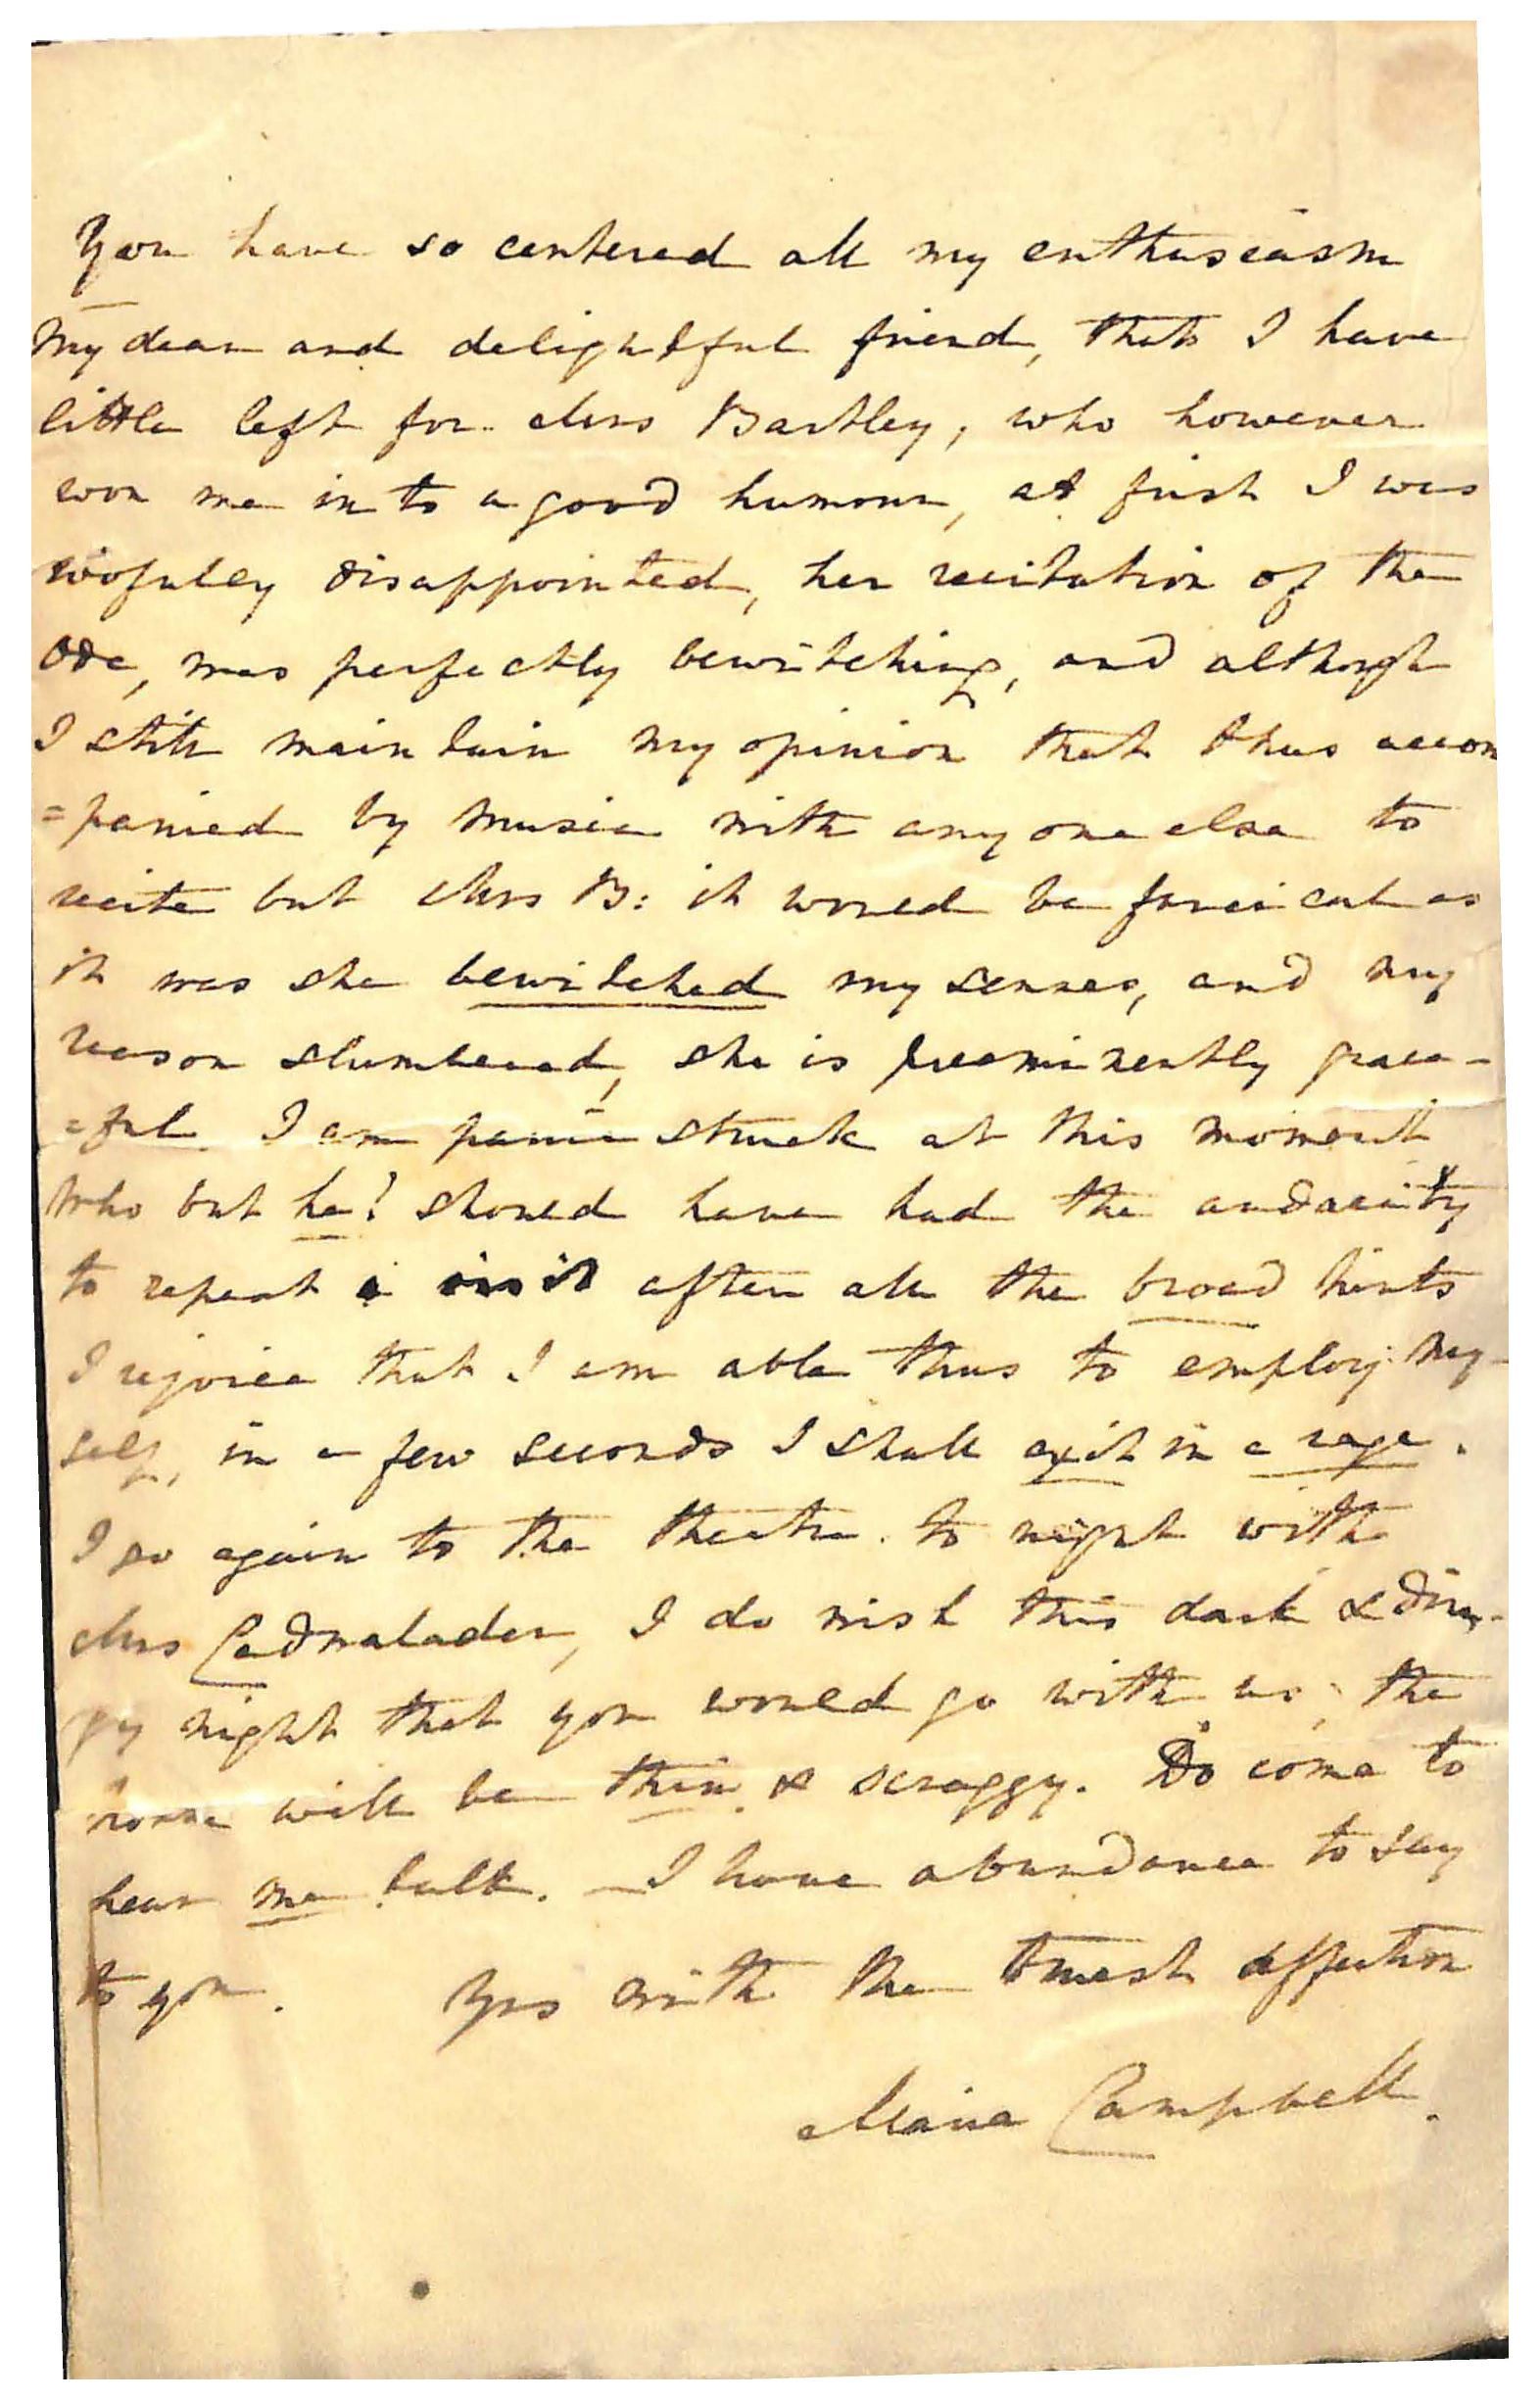 You have so centered all my enthusiasm
My dear and delightful friend, that I have
little left for Mrs Bartley, who however
won me in to a good humour, at first I was
wofully disappointed, her recitation of the
Ode, was perfectly bewitching, and although
I still maintain my opinion that thus accom
=panied by music with any one else to
recite but Mrs B: it would be farcical as
it was she bewitched my senses, and my
reason slumbered, she is preeminently grace-
=ful. I am panic struck at this moment
Who but he! should have had the audacity
to repeat a visit after all the broad hints
I rejoice that I am able thus to employ my-
self, in a few seconds I shall exit in a rage.
I go again to the theatre to night with
Mrs Cadwalader, I do wish this dark & din-
gy night that you would go with us, the
house will be thin & scraggy. Do come to
hear me talk. — I have abundance to say
to you. Yrs with the truest affection
Maria Campbell.